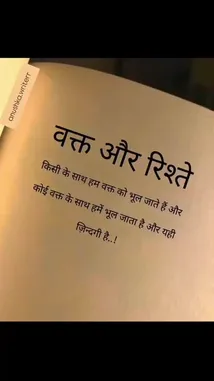 anushka.writerr
वक्त और रिश्ते
किसी के साथ हम वक्त को भूल जाते हैं और
कोई वक्त के साथ हमें भूल जाता है और यही
ज़िन्दगी है..!